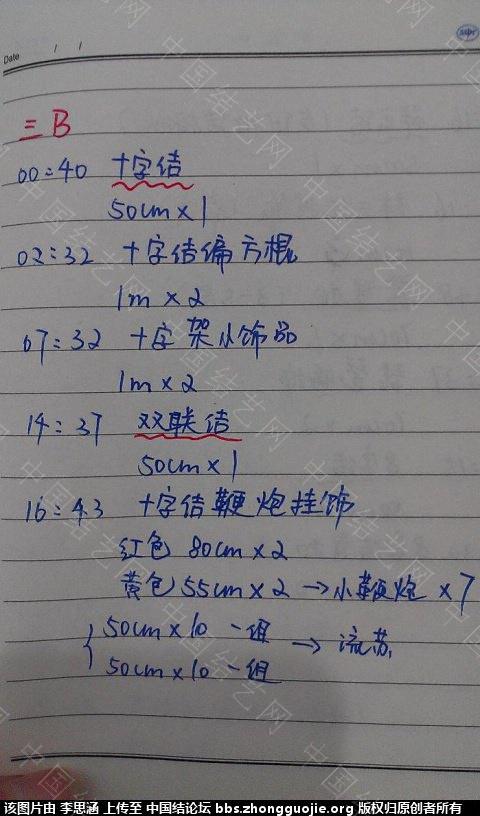 Date / /
三 B
00:40 十字结
50cm×1
02:32 十字结编方棍
1m×2
07:32 十字架小饰品
1m×2
14:37 双联结
50cm×1
16:43 十字结鞭炮挂饰
红色 80cm×2
黄色 55cm×2 →小鞭炮×7
50cm×10 一组 → 流苏
50cm×10 一组
中国结艺网
该图片由 李思涵 上传至 中国结论坛 bbs.zhongguojie.org 版权归原创者所有